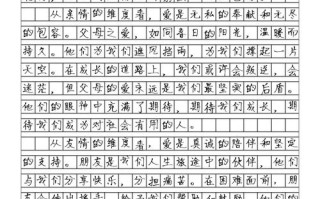 从亲情的维度看，爱是无私的奉献和无尽
的包容。父母之爱，如同春日的阳光，温暖而
持久。他们为我们遮风挡雨，为我们撑起一片
天空。在成长的道路上，我们或许会叛逆，会
迷茫，但父母的爱永远是我们最坚实的后盾。
他们的眼神中充满了期待，期待我们成才，期
待我们成为对社会有用的人。
从友情的维度看，爱是真诚的陪伴和坚定
的支持。朋友是我们人生旅途中的伙伴，他们
与我们分享快乐，分担痛苦。在困难面前，朋